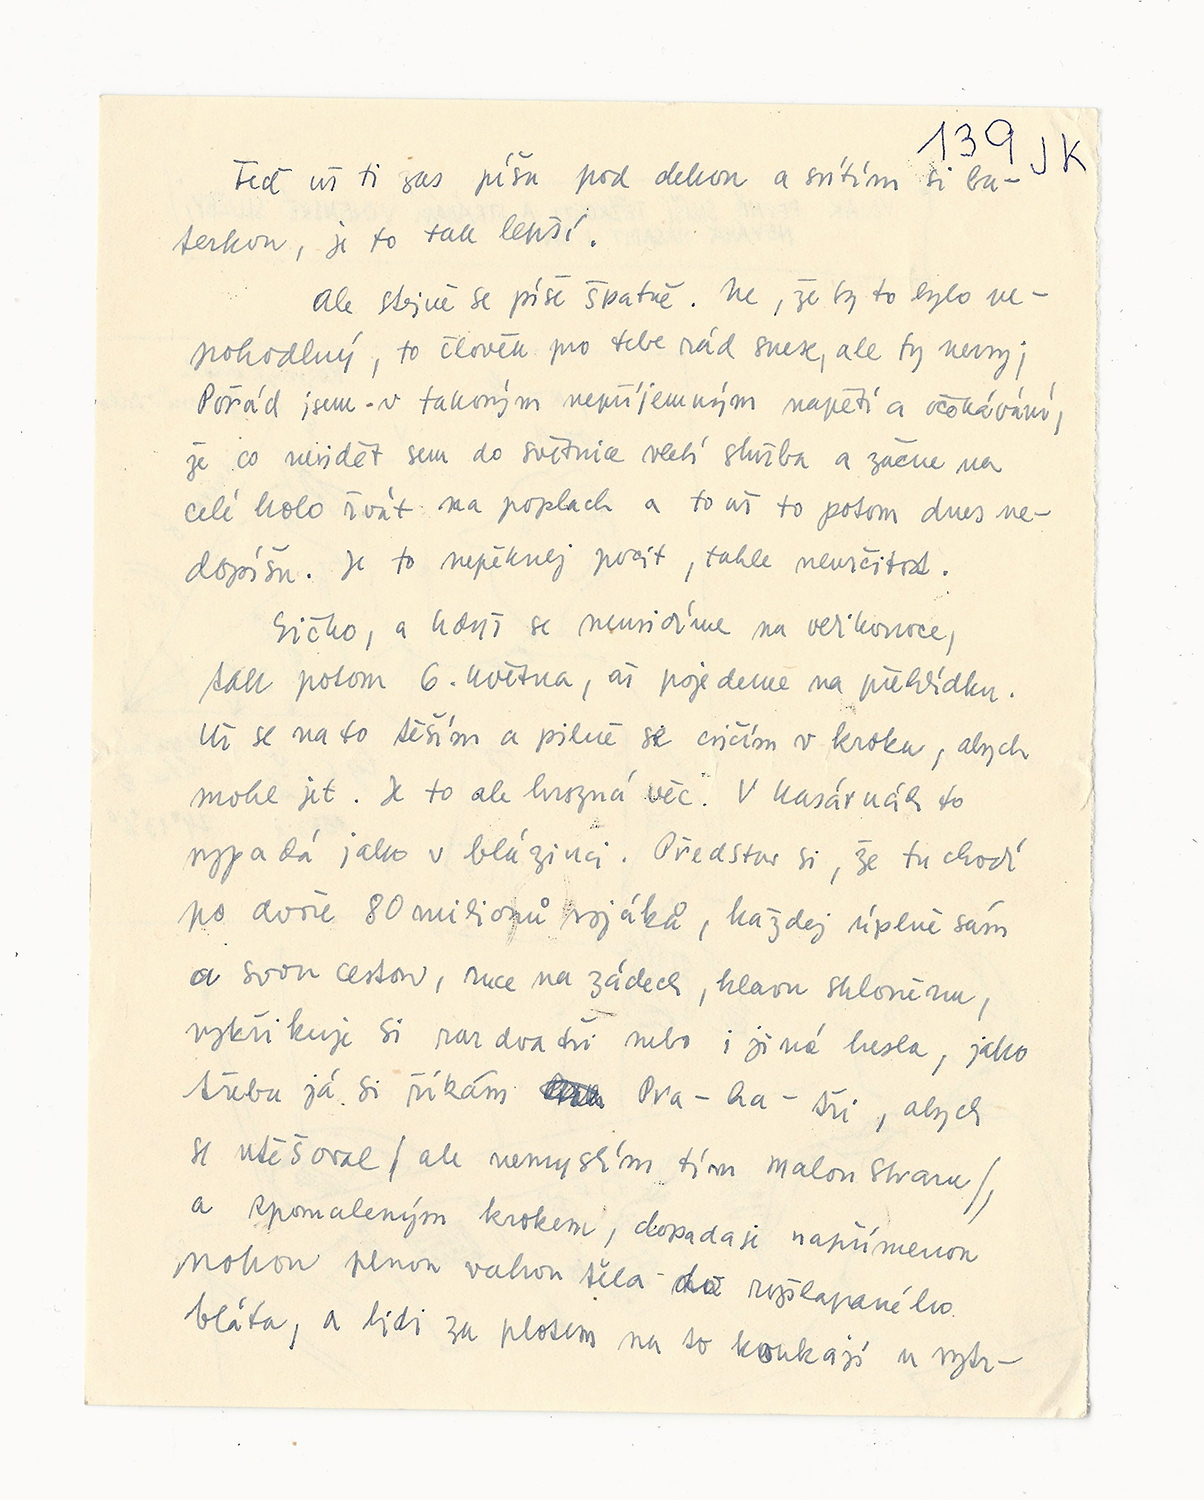 139 JK
Teď už ti zas píšu pod dekou a svítím si ba-
terkou, je to tak lepší.
Ale stejně se píše špatně. Ne, že by to bylo ne-
pohodlný, to člověk pro tebe rád snese, ale ty nervy;
Pořád jsem v takovým nepříjemným napětí a očekávání,
že co nevidět sem do světnice vletí služba a začne na
celé kolo řvát na poplach a to už to potom dnes ne-
dopíšu. Je to nepěknej pocit, tahle neurčitost.
, a když se neuvidíme na velikonoce,
tak potom 6. května, až pojedeme na přehlídku.
Už se na to těším a pilně se cvičím v kroku, abych
mohl jet. Je to ale hrozná věc. V kasárnách to
vypadá jako v blázinci. Představ si, že tu chodí
po dvoře 80 milionů vojáků, každej úplně sám
a svou cestou, ruce na zádech, hlavu skloněnu,
vykřikuje si raz dva tři nebo i jiné hesla, jako
třeba já si říkám Pra-ha-tři, abych
se utěšoval / ale nemyslím tím malou stranu /,
a zpomaleným krokem, dopadaje napřímenou
nohou plnou vahou těla do rozšlapaného
bláta, a lidi za plotem na to koukají u vytr-